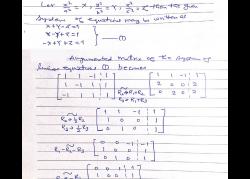 Let x²/a² = X, y²/b² = Y, z²/c² = Z then the given
System of equations may be written as
X+Y-Z=1
X-Y+Z=1 } —①
-X+Y+Z=1
Augmented matrix of the system of
linear equations ① becomes
[1 1 -1 1
1 -1 1 1
-1 1 1 1] R₂→R₂+R₁ R₃→R₃+R₁ [1 1 -1 1
2 0 0 2
0 2 0 2]
R₂→½R₂ R₃→½R₃ [1 1 -1 1
1 0 0 1
0 1 0 1]
[0 0 -1 -1
1 0 0 1
0 1 0 1]
[0 0 1 1